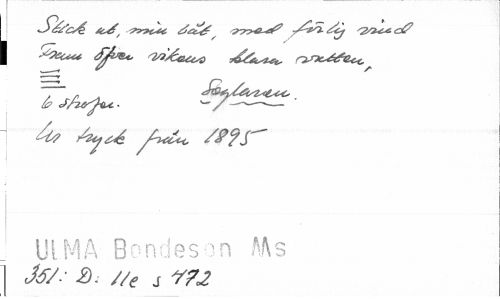 Stick ut, min båt, med förlig vind
Fram öfver vikens klara vatten,
Seglaren.
6 strofer.
Ur tryck från 1895
ULMA Bondeson Ms
351: D: 11e s 472